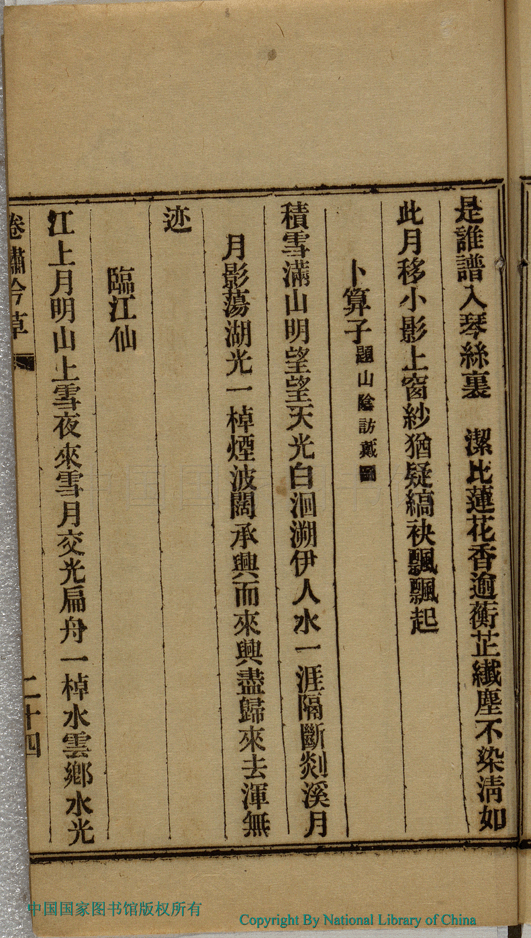 是誰譜入琴絲裏　潔比蓮花香逾蘅芷纖塵不染淸如
此月移小影上窗紗猶疑縞袂飄飄起
卜算子題山陰訪戴圖
積雪滿山明望望天光白洄溯伊人水一涯隔斷剡溪月
月影蕩湖光一棹煙波闊承興而來興盡歸來去渾無
迹
臨江仙
江上月明山上雪夜來雪月交光扁舟一棹水雲鄉水光
二十四
中国国家图书馆版权所有
Copyright By National Library of China